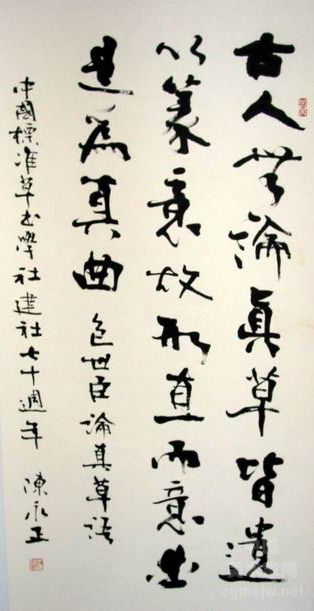 古人無論眞草皆遺
以篆意故形直而意曲
是為真曲 包世臣論真草語
中國標准草書學社建社七十週年 陳永正
zgmsjw.net